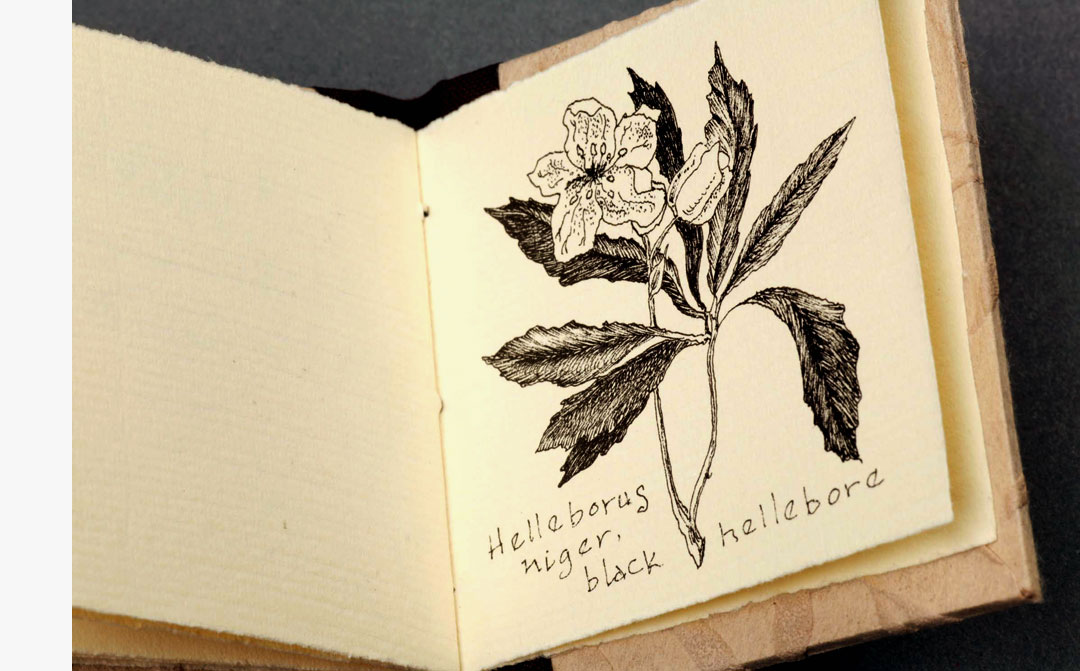 Helleborus
niger.
black hellebore